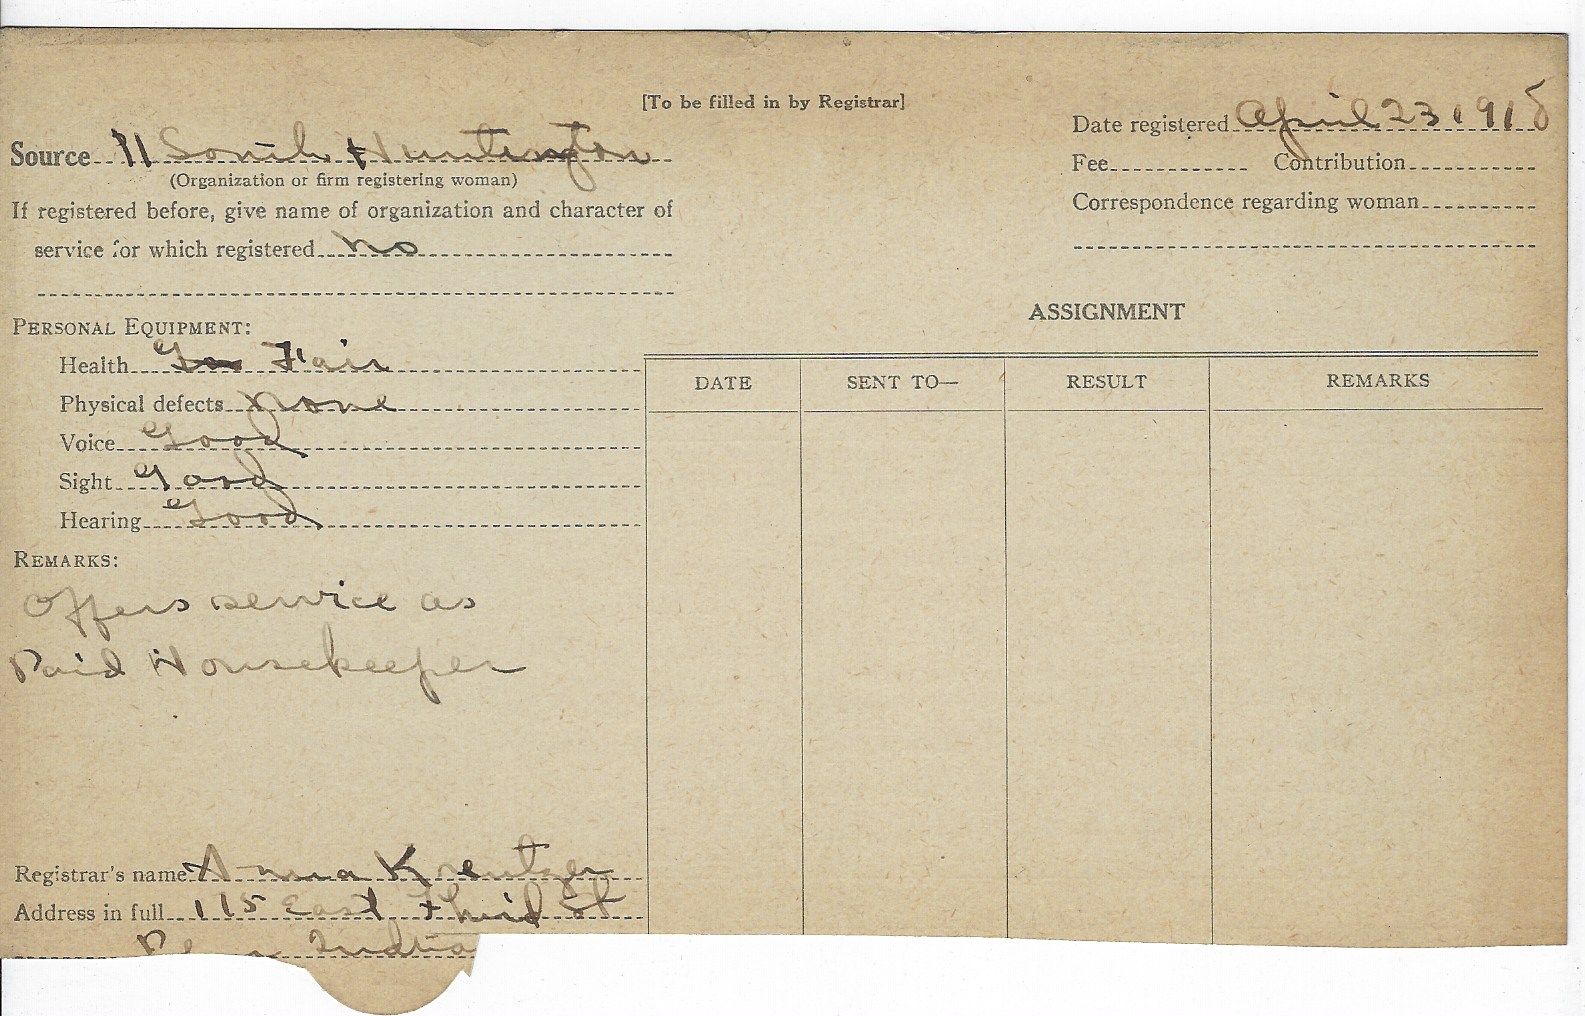 [To be filled in by Registrar]
Date registered April 23 1918
Source 11 South Huntington
Fee Contribution
(Organization or firm registering woman)
If registered before, give name of organization and character of
Correspondence regarding woman
service for which registered no
ASSIGNMENT
PERSONAL EQUIPMENT:
Health Fair
DATE SENT TO— RESULT REMARKS
Physical defects none
Voice Good
Sight Good
Hearing Good
REMARKS:
Offers service as
Paid Housekeeper
Registrar's name Anna Kreutzer
Address in full 115 East Third St
Indiana